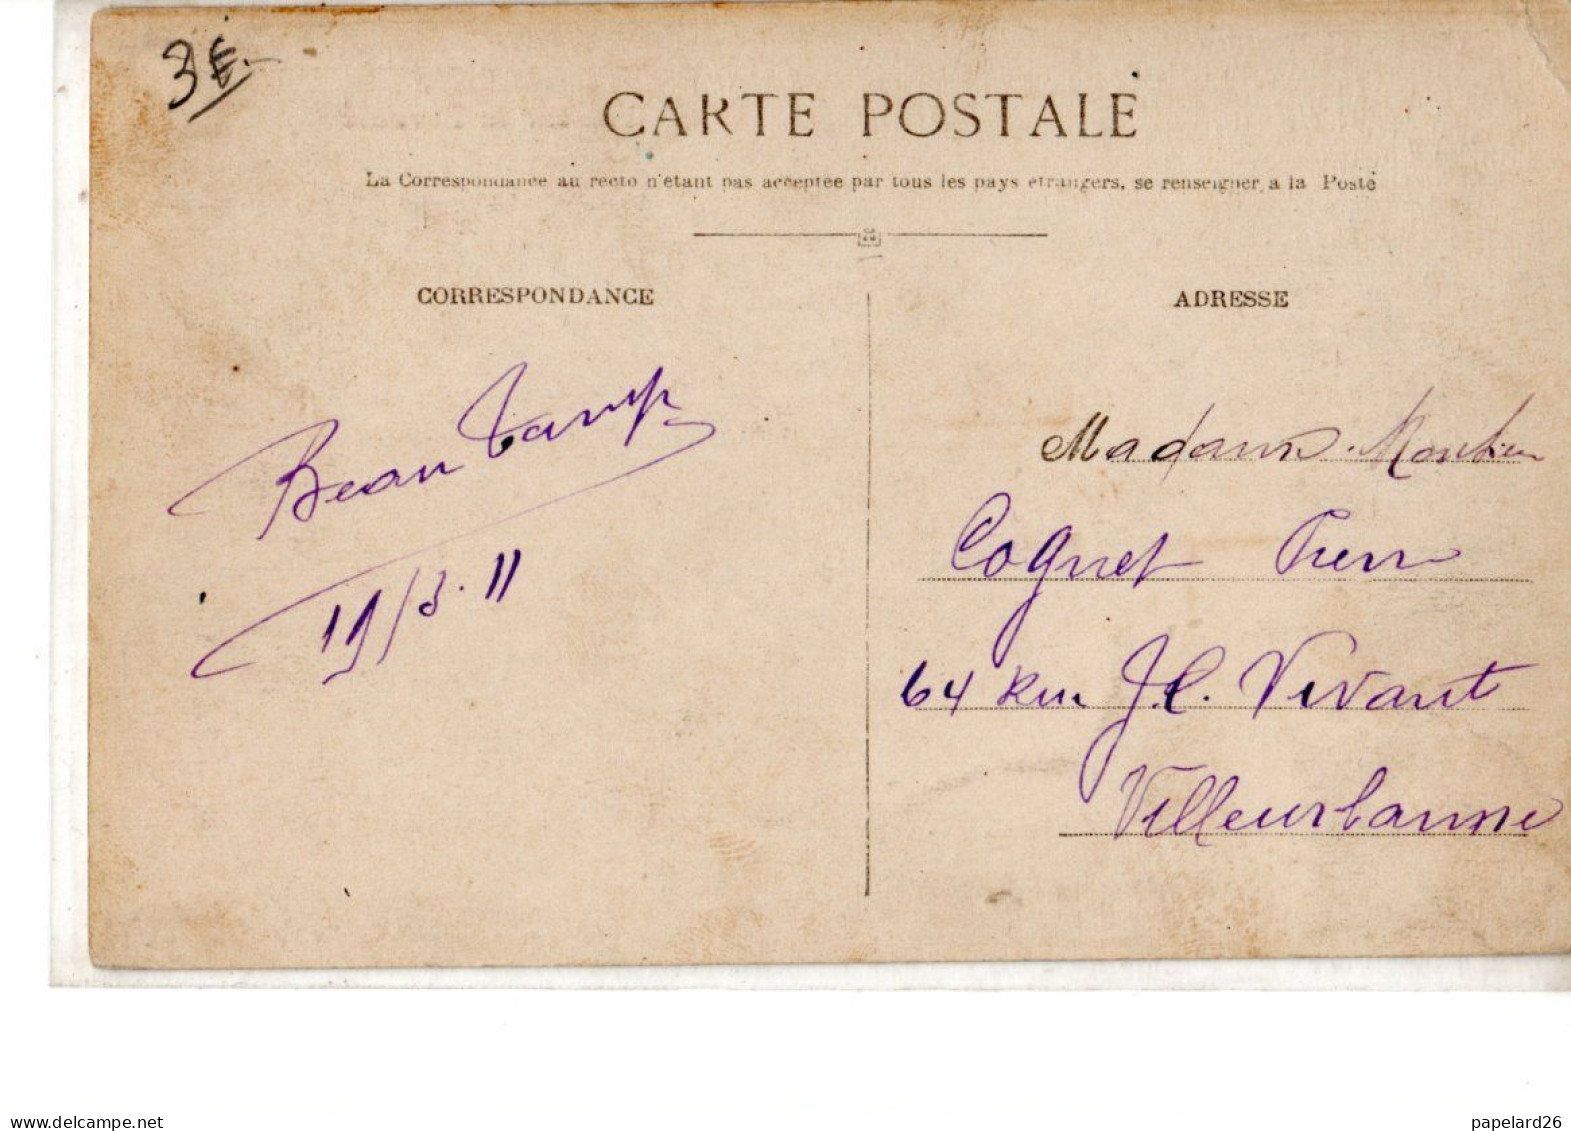 3€.-
CARTE POSTALE
La Correspondance au recto n'étant pas acceptée par tous les pays étrangers, se renseigner à la Poste
CORRESPONDANCE
ADRESSE
Beau Camp
19/3.11
Madame. Monsieur
Coquet Pierre
64 Rue J.C. Vivant
Villeurbanne
www.delcampe.net
papelard26